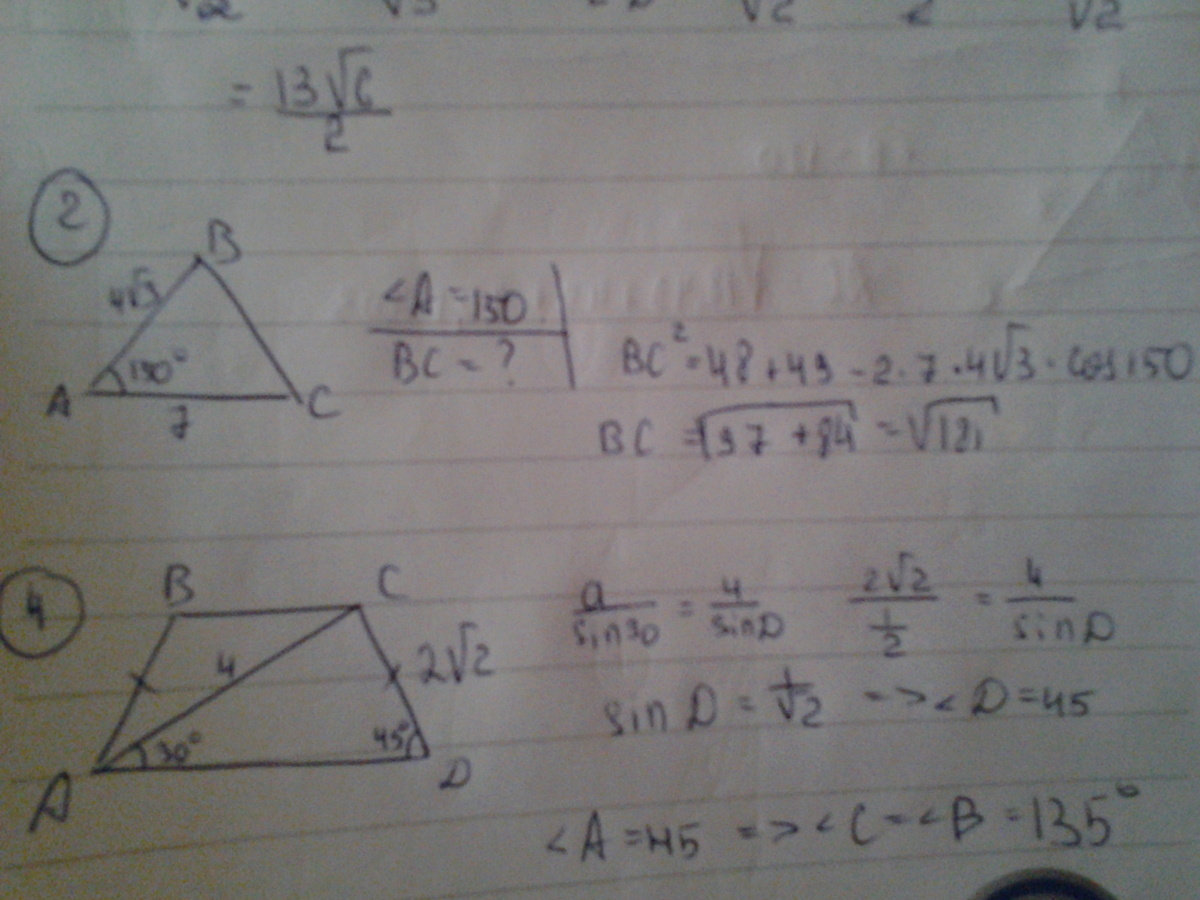 = 13√6 / 2
2
B
4√3
∠A = 150
130°
A
C
7
BC = ?
BC² = 48 + 49 - 2 · 7 · 4√3 · cos 150
BC = √97 + 84 = √181
4
B C
4
2√2
30°
45°
A
D
a / sin 30 = 4 / sin D
2√2 / 1/2 = 4 / sin D
sin D = 1/√2 => ∠D = 45
∠A = 45 => ∠C = ∠B = 135°